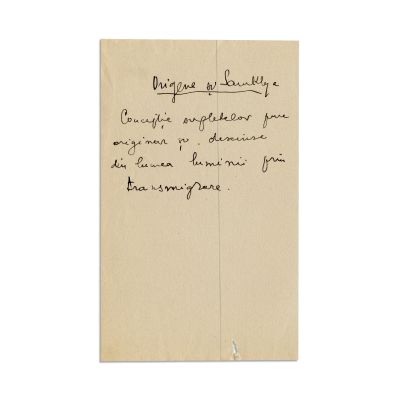 Origene și Samkhya
Concepție sufletelor pure
originar și descinse
din lumea luminii prin
transmigrare.